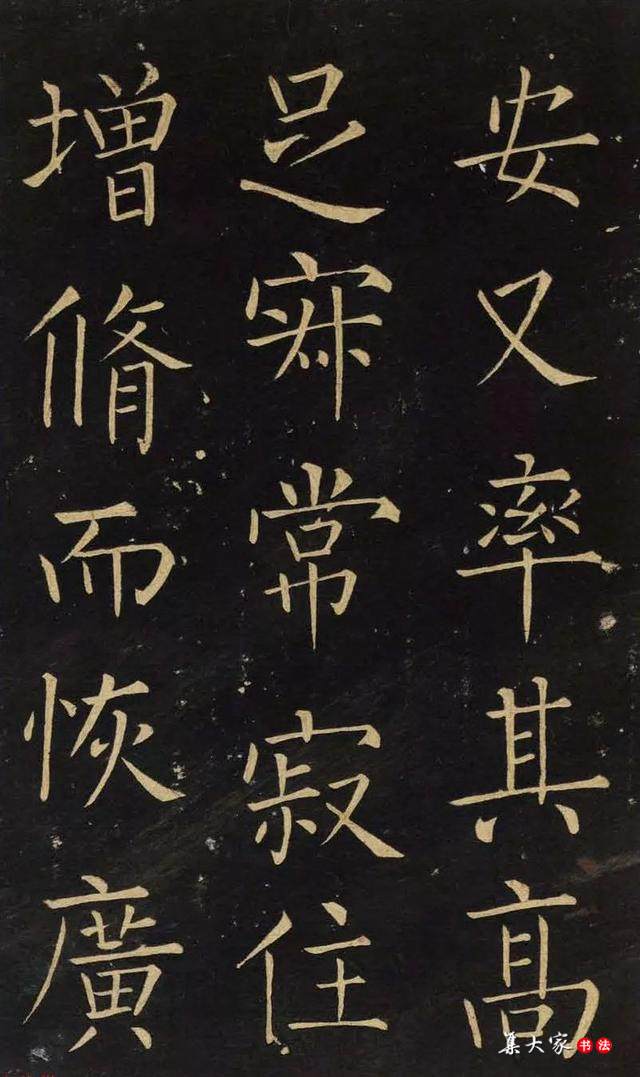 安又率其高
足常寂住
增脩而恢廣
集大家 书法